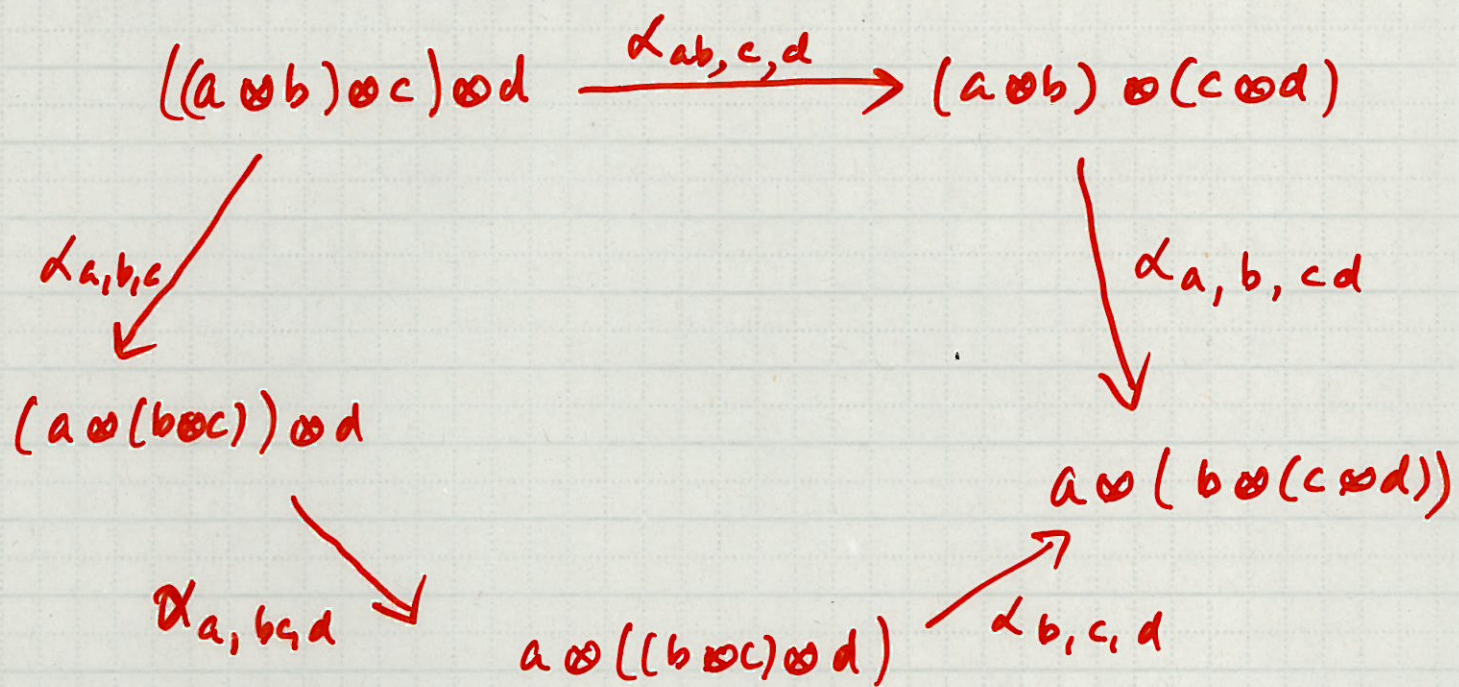 α_{ab,c,d}
((a⊗b)⊗c)⊗d → (a⊗b)⊗(c⊗d)
α_{a,b,c}
α_{a,b,cd}
(a⊗(b⊗c))⊗d
a⊗(b⊗(c⊗d))
α_{a,bc,d}
α_{b,c,d}
a⊗((b⊗c)⊗d)